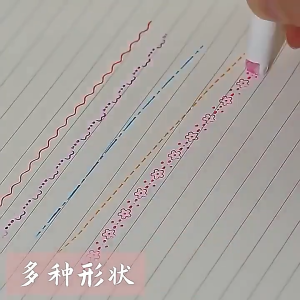 多种形状